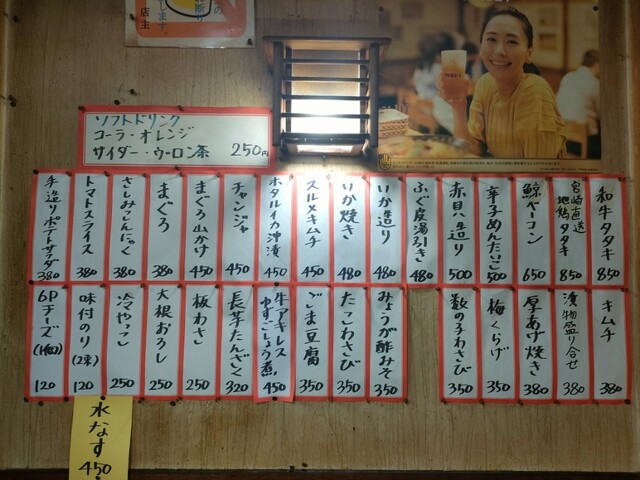 します。
店主
ソフトドリンク
コーラ・オレンジ
サイダー・ウーロン茶 250円
和牛タタキ 850
宮崎直送 地鶏タタキ 850
鯨ベーコン 650
辛子めんたいこ 500
赤貝造り 500
ふぐ皮湯引き 480
いか造り 480
いか焼き 480
スルメキムチ 450
ホタルイカ沖漬 450
チャンジャ 450
まぐろ山かけ 450
まぐろ 380
さしみこんにゃく 380
トマトスライス 380
手造りポテトサラダ 380
キムチ 380
漬物盛り合せ 380
厚あげ焼き 380
梅くらげ 350
数の子わさび 350
みょうが酢みそ 350
たこわさび 350
ごま豆腐 350
牛アキレスゆずこしょう煮 450
長芋たんざく 320
板わさ 250
大根おろし 250
冷やっこ 250
味付のり(2束) 120
6Pチーズ(1個) 120
水なす 450